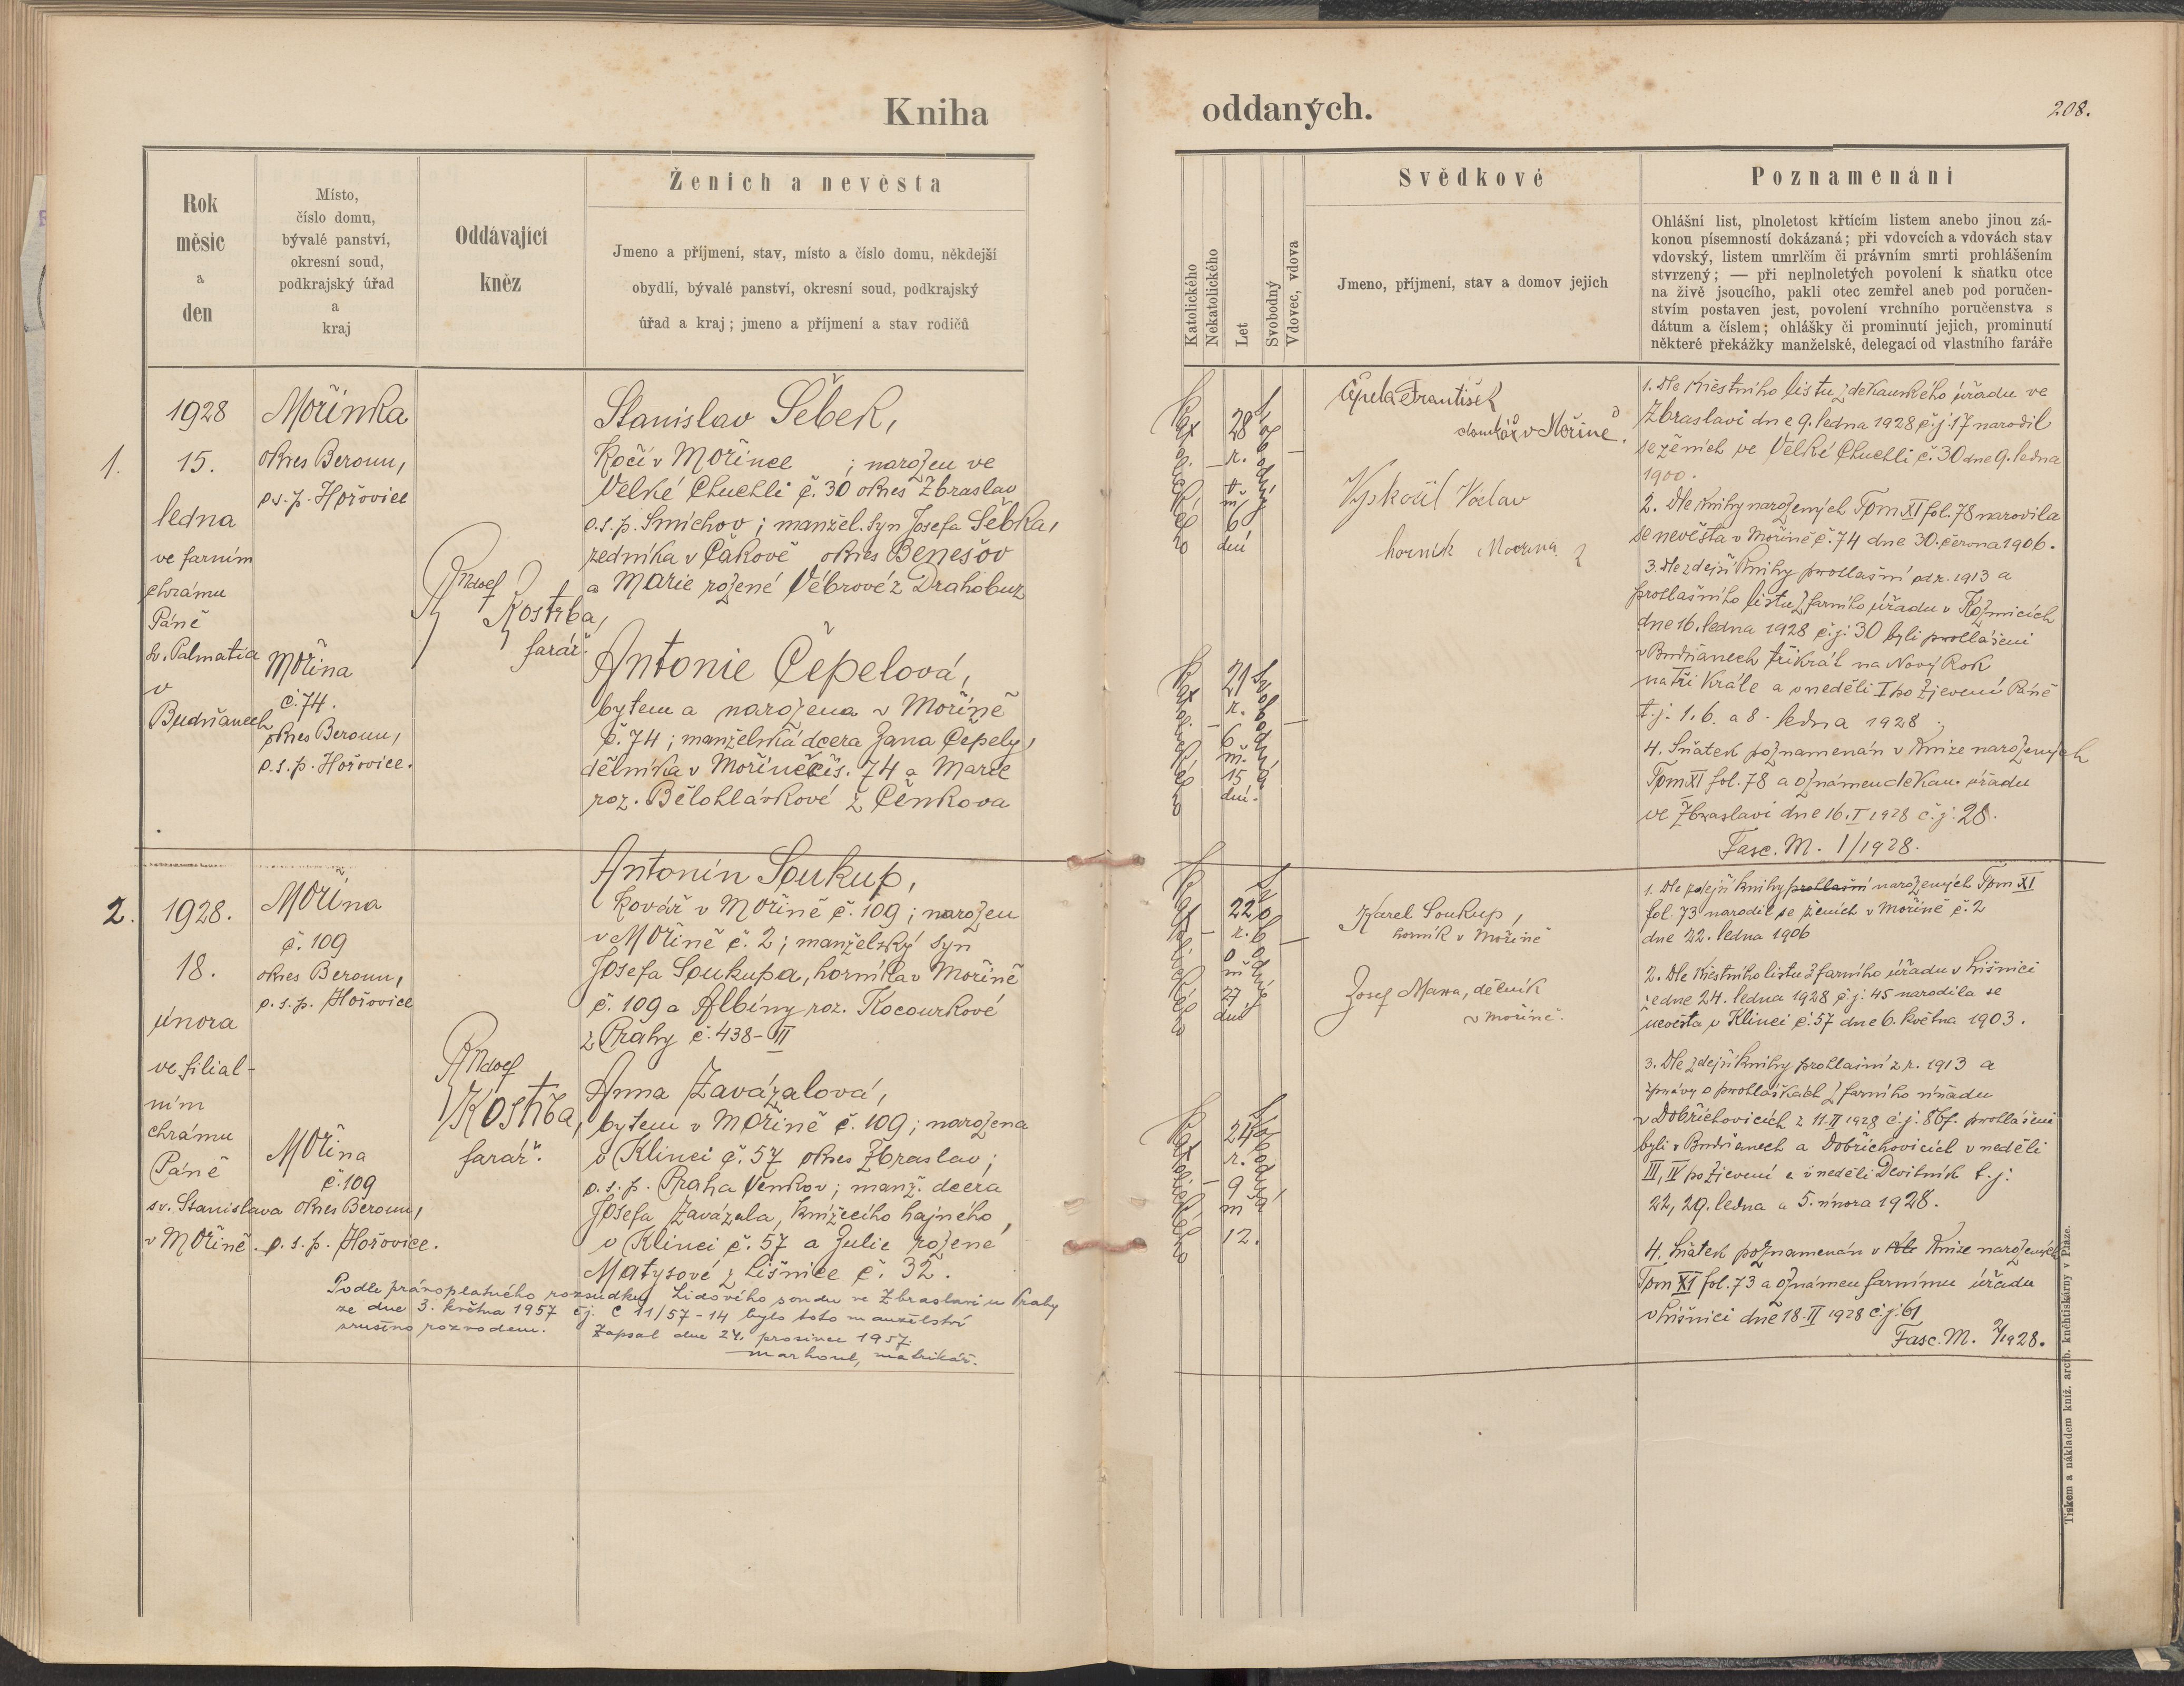 Kniha
oddaných.
208.
Rok
měsíc
a
den
Místo,
číslo domu,
bývalé panství,
okresní soud,
podkrajský úřad
a
kraj
Oddávající
kněz
Ženich a nevěsta
Jmeno a příjmení, stav, místo a číslo domu, někdejší
obydlí, bývalé panství, okresní soud, podkrajský
úřad a kraj; jmeno a příjmení a stav rodičů
Katolického
Nekatolického
Let
Svobodný
Vdovec, vdova
Svědkové
Jmeno, příjmení, stav a domov jejich
Poznamenání
Ohlášní list, plnoletost křtícím listem anebo jinou zá-
konou písemností dokázaná; při vdovcích a vdovách stav
vdovský, listem umrlčím či právním smrti prohlášením
stvrzený; — při neplnoletých povolení k sňatku otce
na živě jsoucího, pakli otec zemřel aneb pod poručen-
stvím postaven jest, povolení vrchního poručenstva s
dátum a číslem; ohlášky či prominutí jejich, prominutí
některé překážky manželské, delegací od vlastního faráře
1.
1928
15.
ledna
ve farním
chrámu
Páně
sv. Palmatia
v
Budňanech
Mořinka
okres Beroun,
o.s.p. Hořovice
Mořina
č. 74.
okres Beroun,
o.s.p. Hořovice.
Rudolf
Kostrba,
farář.
Stanislav Šebek,
Kočí v Mořince ; narozen ve
Velké Chuchli č. 30 okres Zbraslav
o.s.p. Smíchov; manžel. syn Josefa Šebka,
zedníka v Čákově okres Benešov
a Marie rozené Vébrové z Drahobuz
Antonie Čepelová,
bytem a narozena v Mořině
č. 74; manželská dcera Jana Čepely,
dělníka v Mořině čís. 74 a Marie
roz. Bělohlávkové z Čěnkova
Katolické
28
r.
6
dní
Svobodný
Katolické
21
r.
6
m.
15
dní.
Svobodná
Čepela František
domkář v Mořině.
Vyskočil Václav
horník Mořina
1. Dle křestního listu z děkanského úřadu ve
Zbraslavi dne 9. ledna 1928 č.j. 17 narodil
se ženich ve Velké Chuchli č. 30 dne 9. ledna
1900.
2. Dle knihy narozených Tom XI fol. 78 narodila
se nevěsta v Mořině č. 74 dne 30. června 1906.
3. Dle zdejší knihy prohlašní od r. 1913 a
prohlašního listu z farního úřadu v
dne 16. ledna 1928 č.j. 30 byli prohlášeni
v Budňanech třikrát na Nový Rok
na Tři Krále a v neděli I po Zjevení Páně
t.j. 1. 6. a 8. ledna 1928.
4. Sňatek poznamenán v knize narozených
Tom XI fol. 78 a oznámen děkan. úřadu
ve Zbraslavi dne 16. I 1928 č.j. 28.
Fasc. M. 1/1928.
2.
1928.
18.
února
ve filial-
ním
chrámu
Páně
sv. Stanislava
v Mořině.
Mořina
č. 109
okres Beroun,
o.s.p. Hořovice
Mořina
č. 109
okres Beroun,
o.s.p. Hořovice.
Rudolf
Kostrba,
farář.
Antonín Soukup,
Kovář v Mořině č. 109; narozen
v Mořině č. 2; manželský syn
Josefa Soukupa, horníka v Mořině
č. 109 a Albíny roz. Kocourkové
z Prahy č. 438-II
Anna Zavázalová,
bytem v Mořině č. 109; narozena
v Klinci č. 57 okres Zbraslav;
o.s.p. Praha Venkov; manž. dcera
Josefa Zavázala, knížecího hajného,
v Klinci č. 57 a Julie rozené
Matysové z Lišnice č. 32.
Podle právoplatného rozsudku Lidového soudu ve Zbraslavi u Prahy
ze dne 3. května 1957 čj. C 11/57-14 bylo toto manželství
zrušeno rozvodem. Zapsal dne 24. prosince 1957.
Marhoul, matrikář.
Katolické
22
r.
0
m
27
dní
Svobodný
Katolické
24
r.
9
m
12.
Svobodná
Karel Soukup,
horník v Mořině
Josef Massa, dělník
v Mořině.
1. Dle zdejší knihy prohlašní narozených Tom XI
fol. 73 narodil se ženich v Mořině č. 2
dne 22. ledna 1906
2. Dle křestního listu z farního úřadu v Lišnici
ze dne 24. ledna 1928 č.j. 45 narodila se
nevěsta v Klinci č. 57 dne 6. května 1903.
3. Dle zdejší knihy prohlašní z r. 1913 a
zprávy o prohláškách z farního úřadu
v Dobřichovicích z 11. II 1928 č.j. 86f. prohlášeni
byli v Budňanech a Dobřichovicích v neděli
III, IV po Zjevení a v neděli Devítník t.j:
22, 29. ledna a 5. února 1928.
4. Sňatek poznamenán v knize narozených
Tom XI fol. 73 a oznámen farnímu úřadu
v Lišnici dne 18. II 1928 čj. 61
Fasc. M. 2/1928.
Tiskem a nákladem kníž. arcib. knihtiskárny v Praze.